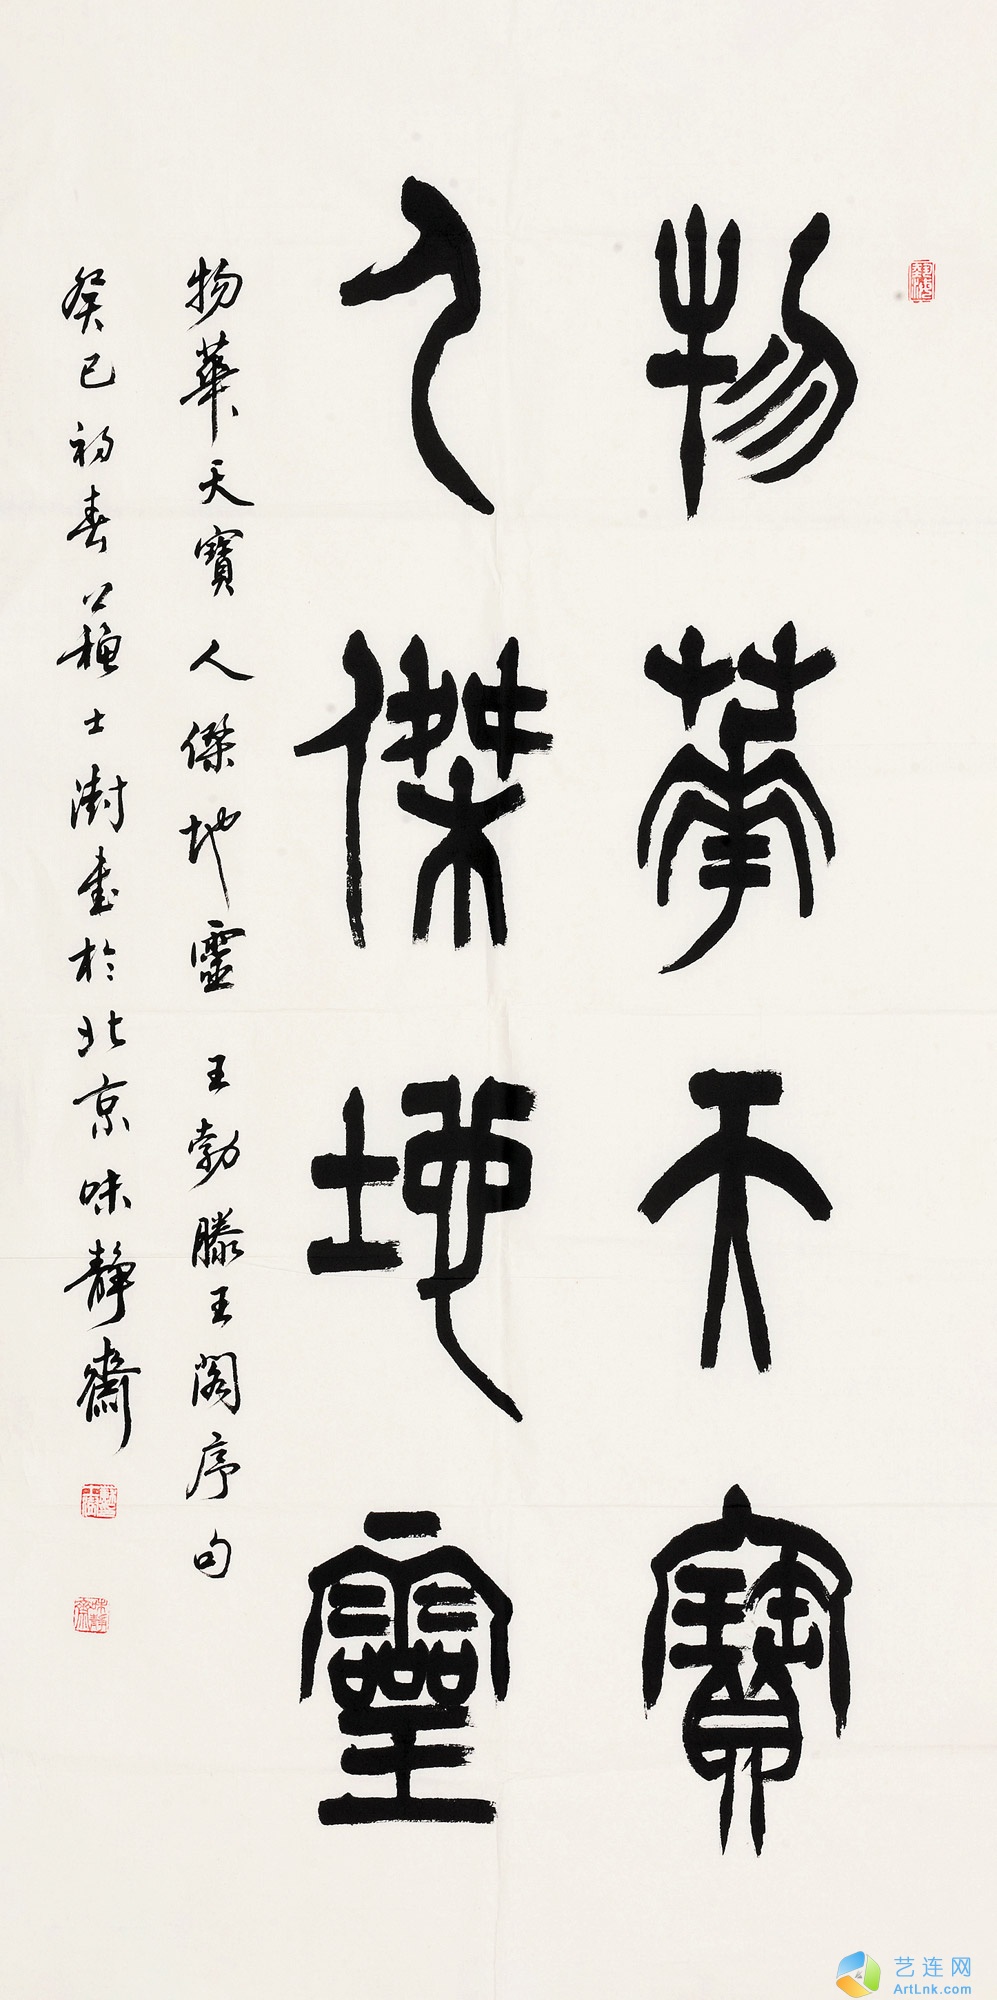 物華天寶
人傑地靈
物華天寶人傑地靈 王勃滕王閣序句
癸巳初春 士澍書於北京味靜齋
味靜齋
艺连网
ArtLnk.com